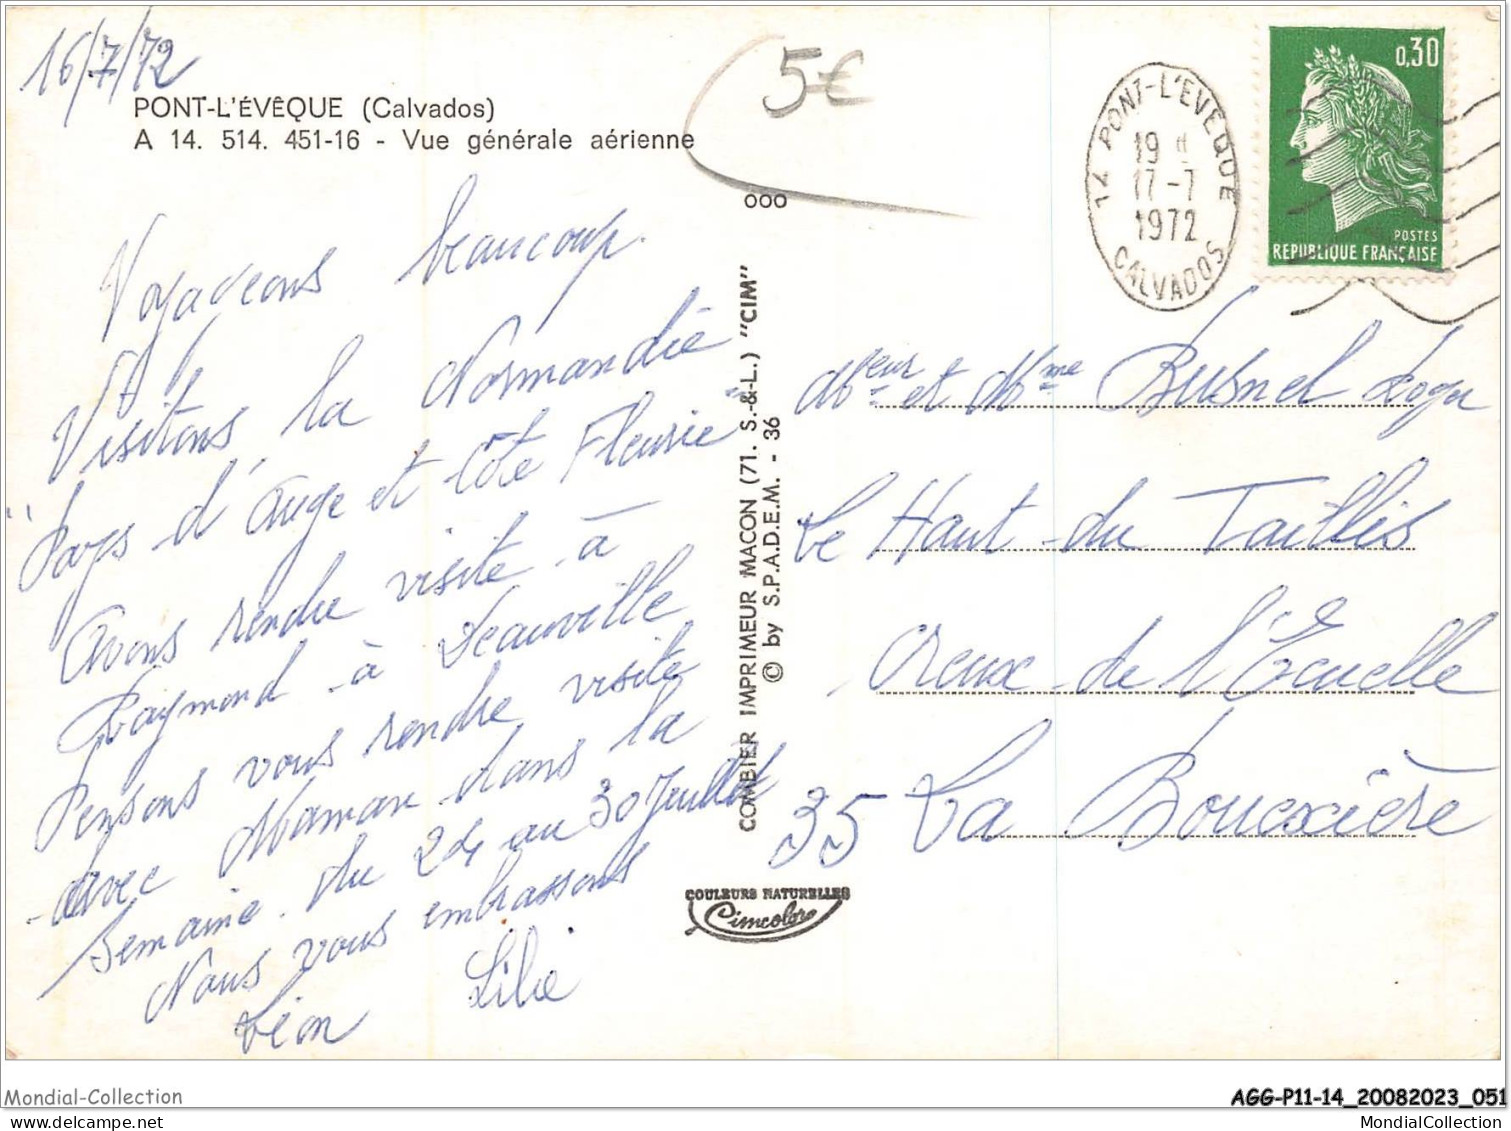 16/7/72
5€
PONT-L'ÉVÊQUE (Calvados)
A 14. 514. 451-16 - Vue générale aérienne
ooo
Voyageons beaucoup.
Visitons, la Normandie
"Pays d'Auge et Côte Fleurie"
Avons rendre visite à
Raymond à Deauville
Pensons vous rendre visite
avec Maman dans la
semaine du 24 au 30 Juillet
Nous vous embrassons
Léon Lilie
COMBIER IMPRIMEUR MACON (71. S.-&-L.) "CIM"
© by S.P.A.D.E.M. - 36
COULEURS NATURELLES
Cimcolor
14 PONT-L'EVEQUE
19 H
17-7
1972
CALVADOS
0,30
POSTES
REPUBLIQUE FRANÇAISE
Meur et Mme Busnel
Le Haut du Taillis
Creux de l'Ecuelle
35 La Bouexière
Mondial-Collection
AGG-P11-14_20082023_051
www.delcampe.net
MondialCollection